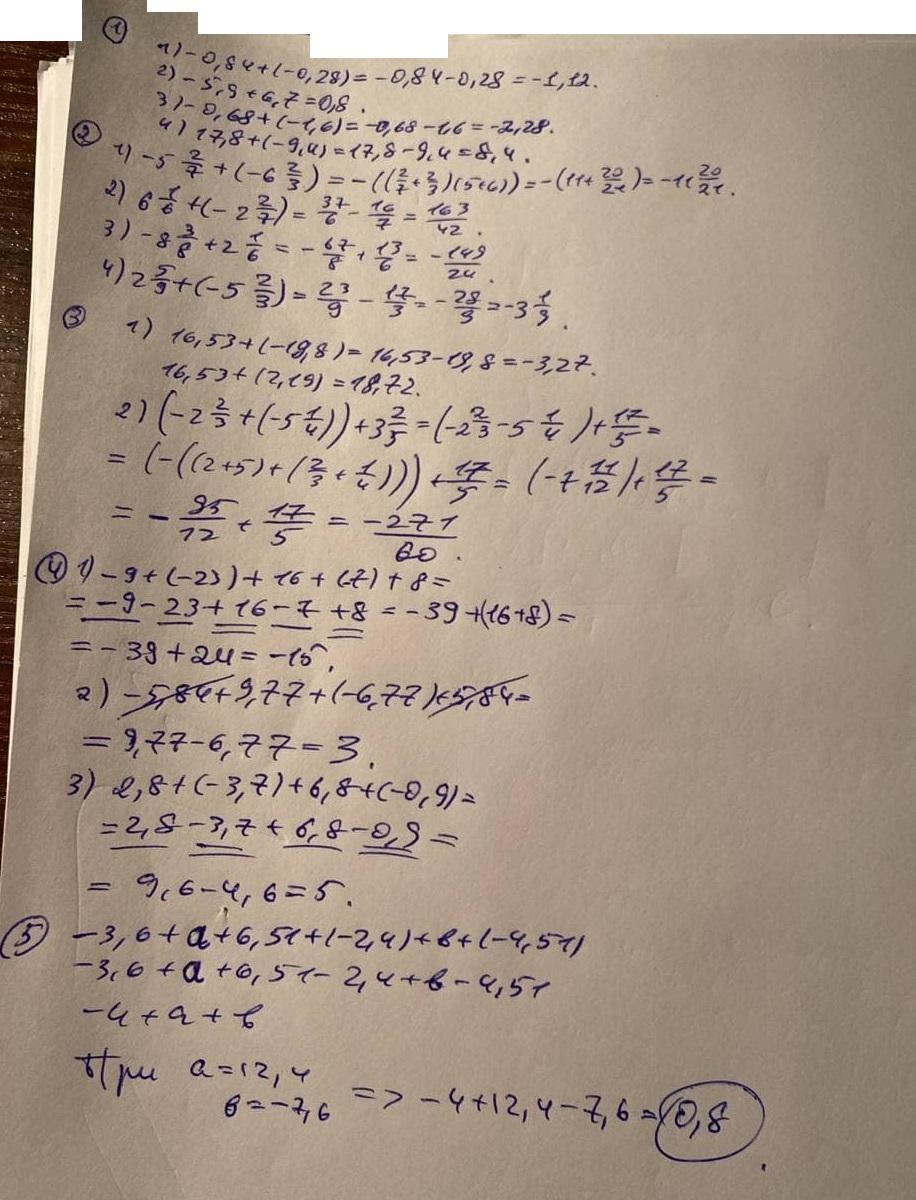 ①
1) -0,84+(-0,28)= -0,84-0,28 = -1,12.
2) -5,9+6,7=0,8.
3) -0,68+(-1,6)= -0,68-1,6= -2,28.
4) 17,8+(-9,4)=17,8-9,4=8,4.
②
1) -5 2/7 + (-6 2/3) = -((2/7+2/3)(5+6))= -(11+20/21)= -11 20/21.
2) 6 1/6 +(-2 2/7)= 37/6 - 16/7 = 163/42.
3) -8 3/8 + 2 1/6 = -67/8 + 13/6 = -149/24.
4) 2 5/9 +(-5 2/3)= 23/9 - 17/3 = -28/9 = -3 1/9.
③
1) 16,53+(-19,8)=16,53-19,8=-3,27.
16,53+(2,19)=18,72.
2) (-2 2/3 + (-5 1/4))+3 2/5 = (-2 2/3 - 5 1/4)+ 17/5 =
= (-((2+5)+(2/3+1/4)))+ 17/5 = (-7 11/12)+ 17/5 =
= -95/12 + 17/5 = -271/60.
④ 1) -9+(-23)+16+(-7)+8=
= -9-23+16-7+8 = -39+(16+8)=
= -39+24= -15.
2) -5,84+9,77+(-6,77)+5,84=
= 9,77-6,77=3.
3) 2,8+(-3,7)+6,8+(-0,9)=
=2,8-3,7+6,8-0,9=
= 9,6-4,6=5.
⑤ -3,6+a+6,51+(-2,4)+в+(-4,51)
-3,6+a+6,51-2,4+в-4,51
-4+a+в
При a=12,4
в=-7,6 => -4+12,4-7,6=0,8.